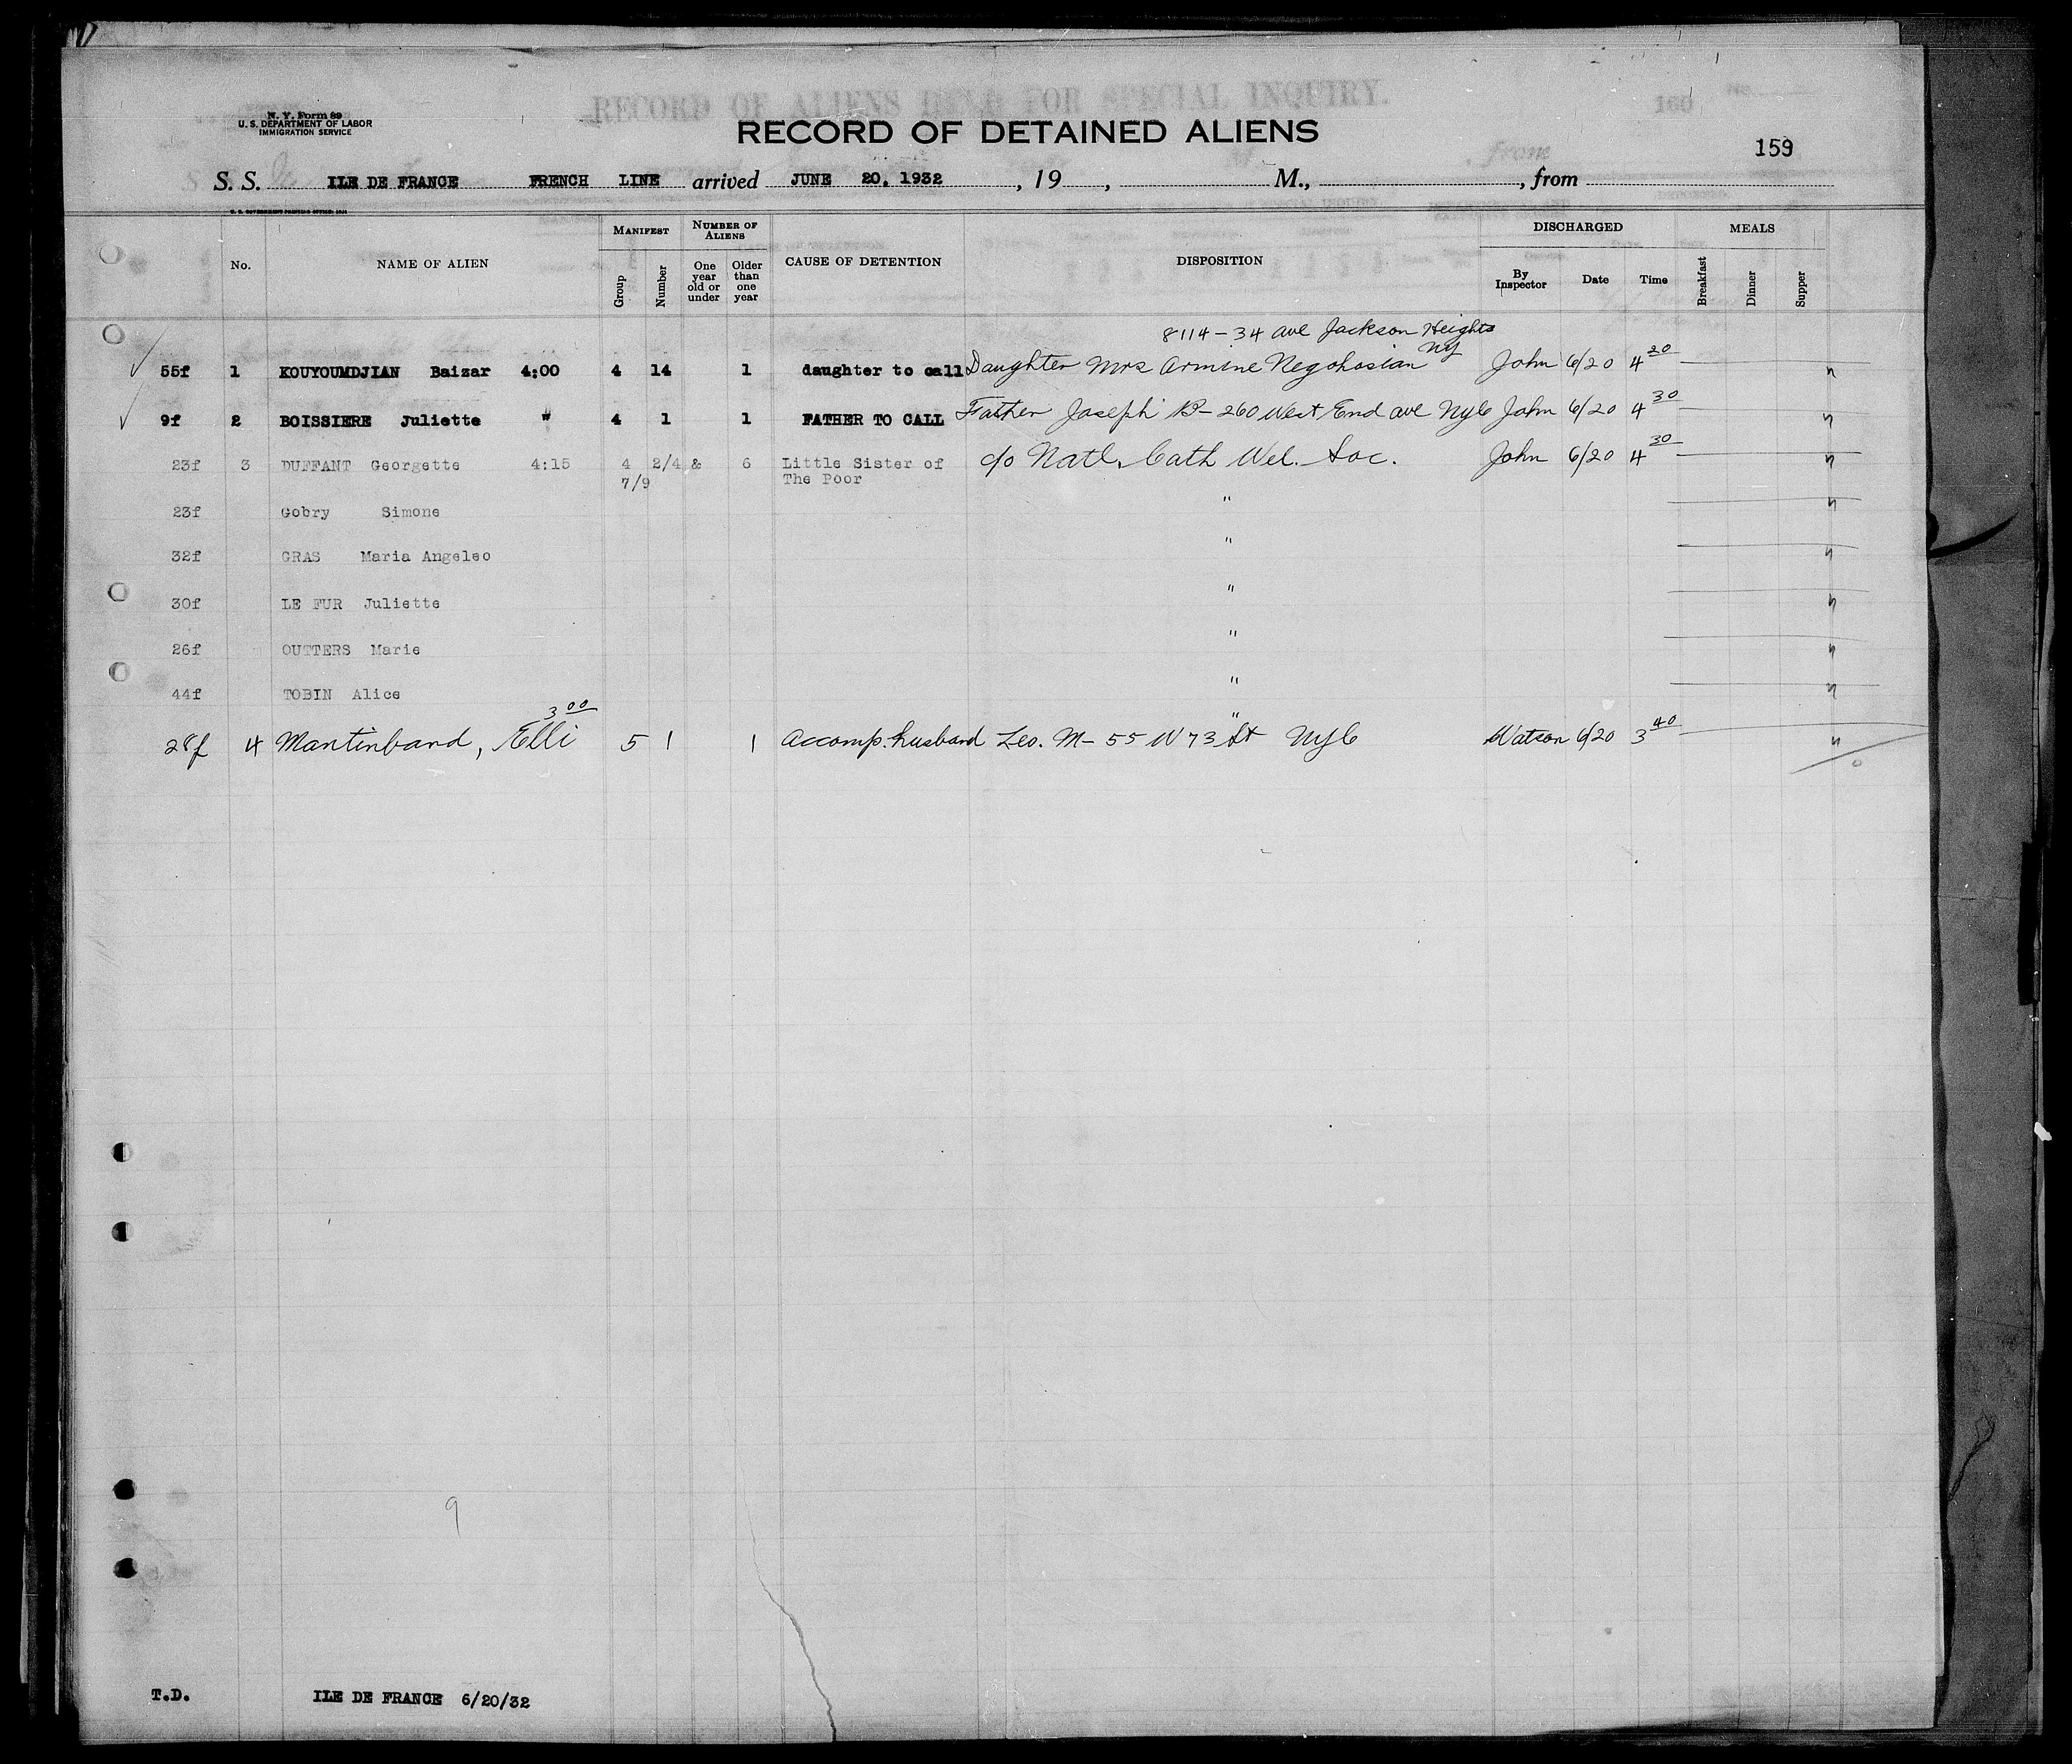 N. Y. Form 89
U. S. DEPARTMENT OF LABOR
IMMIGRATION SERVICE
RECORD OF ALIENS HELD FOR SPECIAL INQUIRY.
160
RECORD OF DETAINED ALIENS
159
S. S. ILE DE FRANCE FRENCH LINE arrived JUNE 20, 1932 , 19 , M., , from
MANIFEST NUMBER OF ALIENS DISCHARGED MEALS
No. NAME OF ALIEN Group Number One year old or under Older than one year CAUSE OF DETENTION DISPOSITION By Inspector Date Time Breakfast Dinner Supper
8114-34 ave Jackson Heights
NY
55f 1 KOUYOUMDJIAN Baizar 4:00 4 14 1 daughter to call Daughter Mrs Armine Negohosian John 6/20 4 20
9f 2 BOISSIERE Juliette " 4 1 1 FATHER TO CALL Father Joseph B- 260 West End ave NyC John 6/20 4 30
23f 3 DUFFANT Georgette 4:15 4 2/4 & 6 Little Sister of c/o Natl. Cath Wel. Soc. John 6/20 4 30
7/9 The Poor
23f Gobry Simone "
32f GRAS Maria Angeleo "
30f LE FUR Juliette "
26f OUTTERS Marie "
44f TOBIN Alice "
3 00 "
28f 4 Mantinband, Elli 5 1 1 Accomp. husband Leo. M- 55 W 73 St NyC Watson 6/20 3 40
9
T.D. ILE DE FRANCE 6/20/32